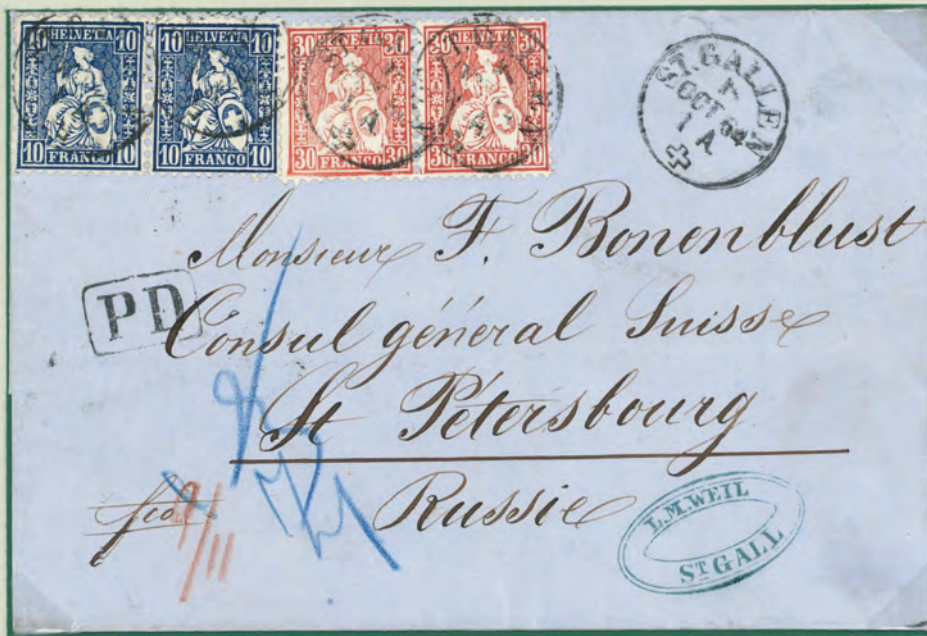 10 HELVETIA 10
10 FRANCO 10
10 HELVETIA 10
10 FRANCO 10
30 HELVETIA 30
30 FRANCO 30
30 HELVETIA 30
30 FRANCO 30
ST. GALLEN
OCT 64
1 A
Monsieur F. Bonenblust
PD
Consul général Suisse
St Pétersbourg
Russie
fco
L.M.WEIL
ST GALL